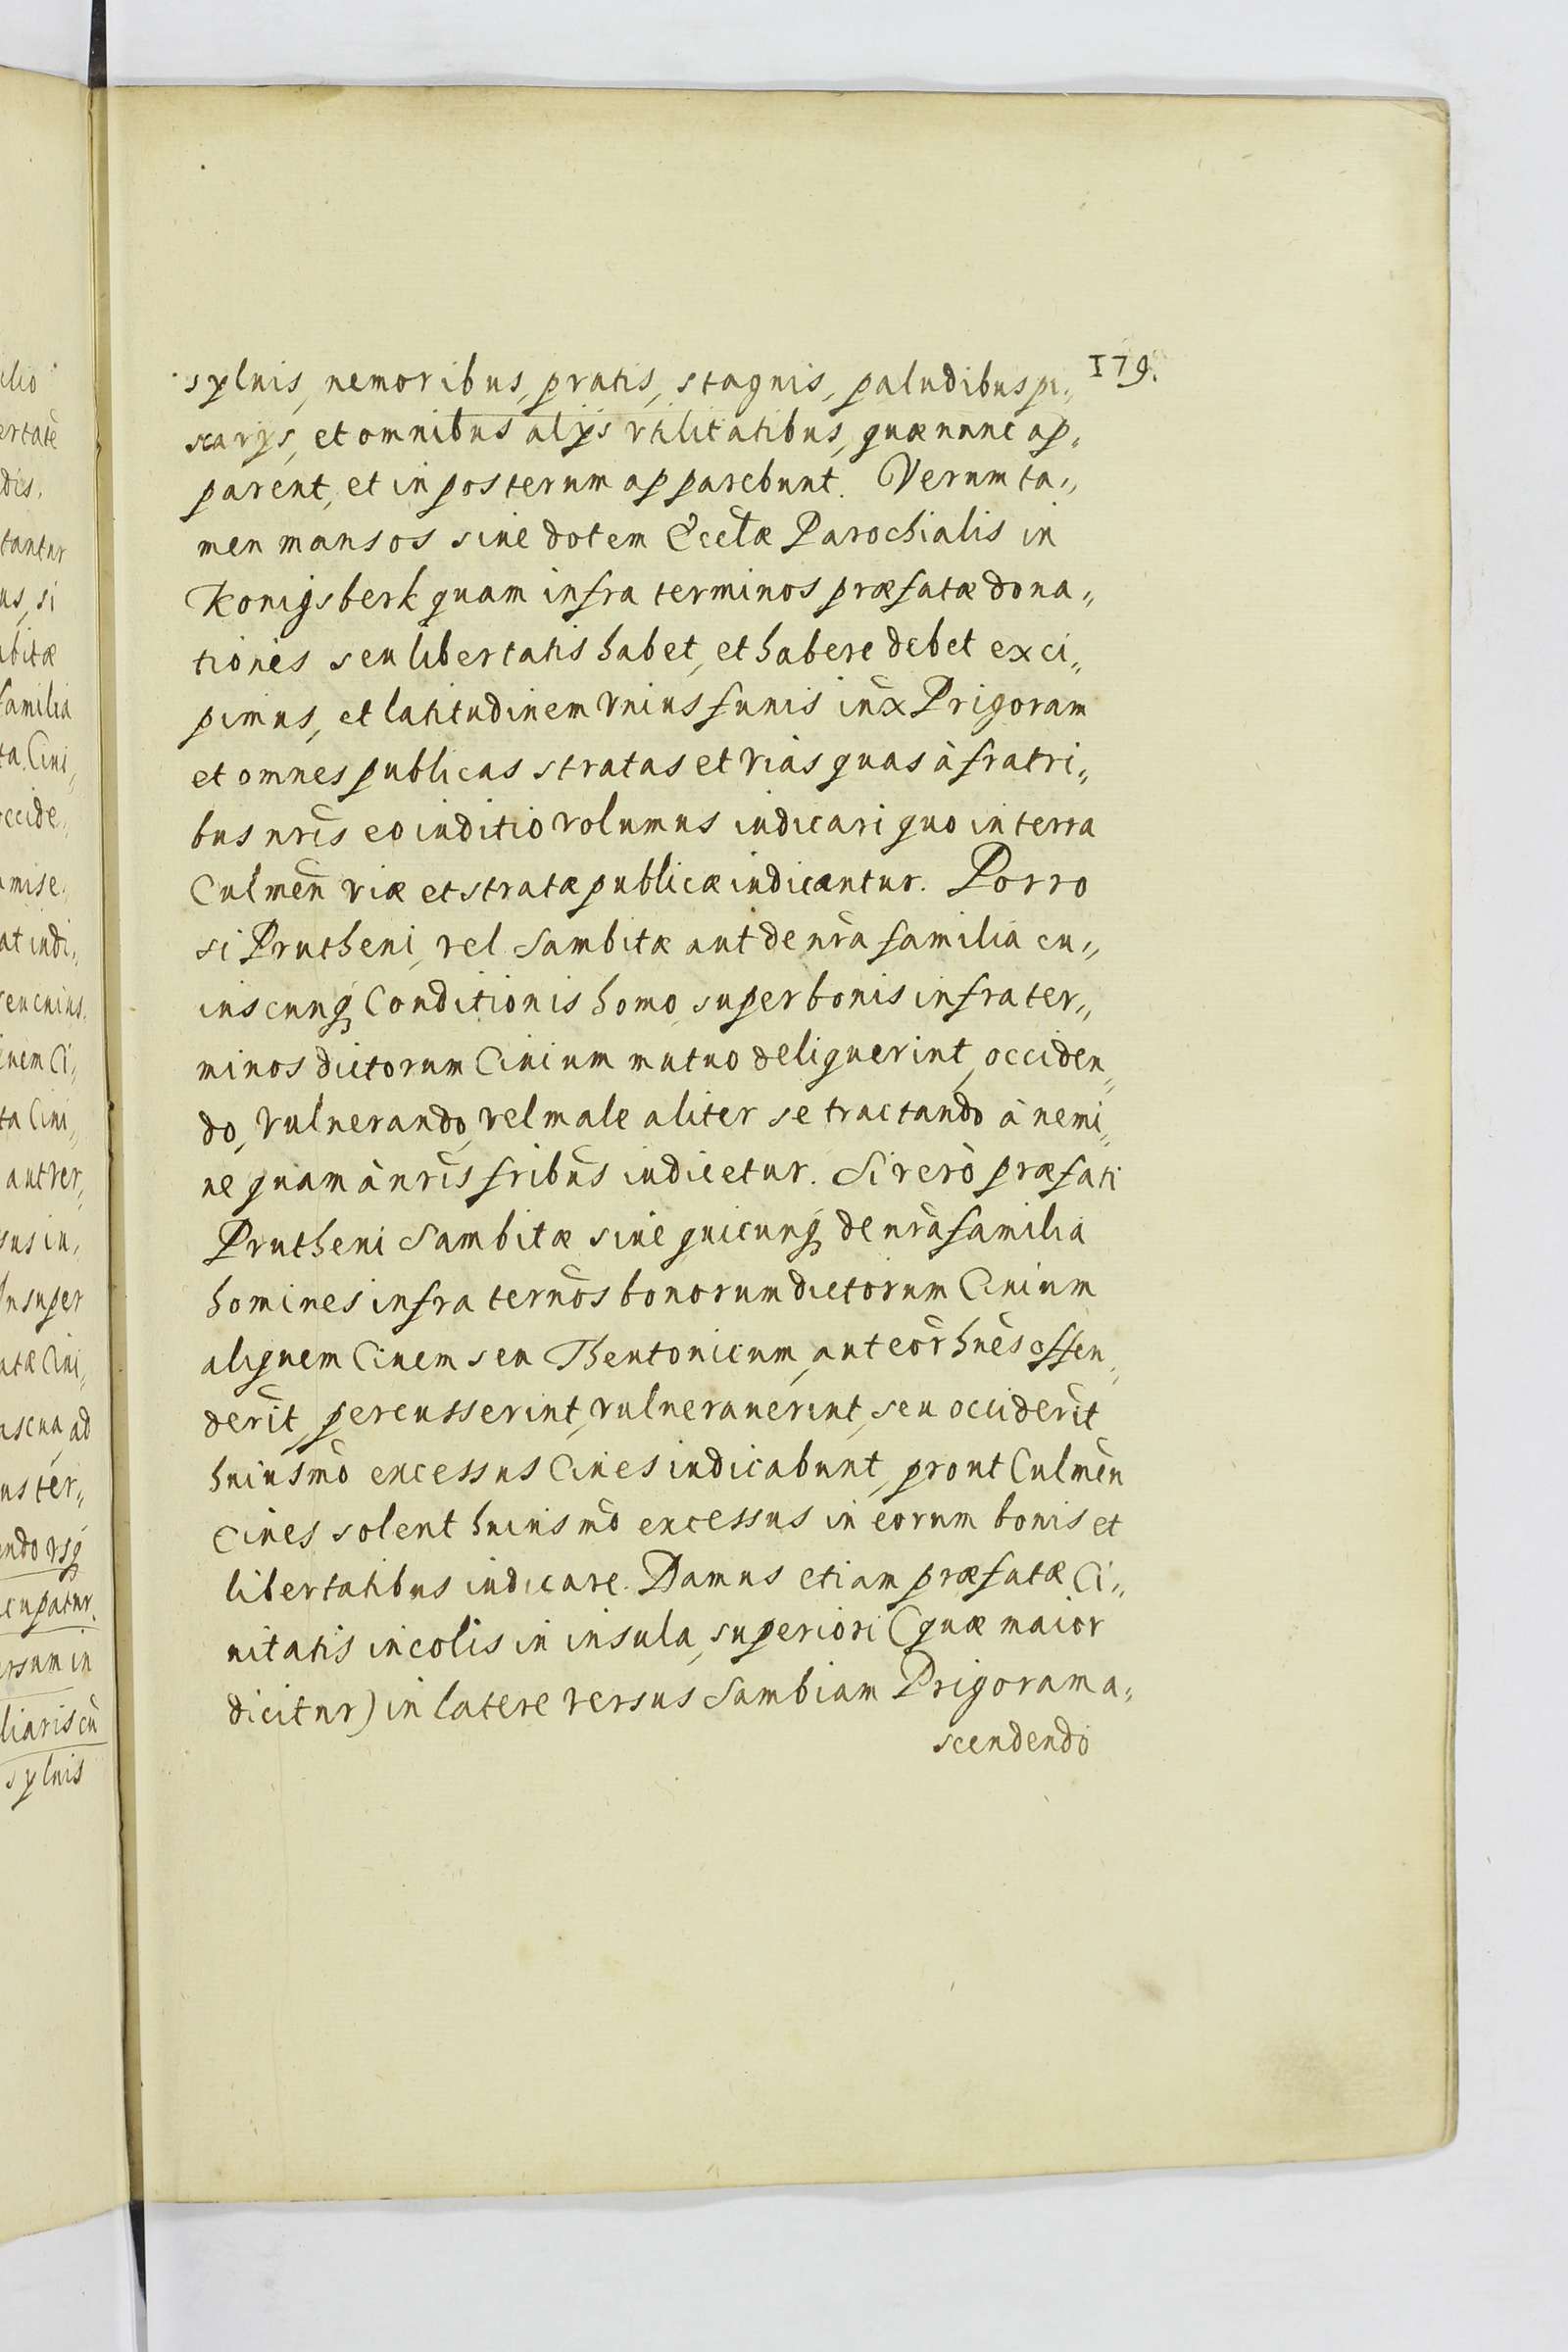 179.
syluis, nemoribus, pratis, stagnis, paludibus pi„
scarijs, et omnibus alijs vtilitatibus, quæ nunc ap„
parent, et in posterum apparebunt. Verum ta„
men mansos siue dotem Eccłæ Parochialis in
Konigsberk quam infra terminos præfatæ dona„
tiones seu libertatis habet, et habere debet exci„
pimus, et latitudinem vnius funis iùx Prigoram
et omnes publicas stratas et vias quas à fratri„
bus nr̃is eo iuditio volumus iudicari quo in terra
Culmeñ viæ et stratæ publicæ iudicantur. Porro
si Prutheni, vel Sambitæ aut de nr̃a familia cu„
iuscunq̨ Conditionis homo super bonis infra ter„
minos dictorum Ciuium mutuo deliquerint, occiden„
do, vulnerando, vel male aliter se tractando à nemi„
ne quam à nr̃is fribũs iudicetur. Si verò præfati
Prutheni Sambitæ siue quicunq̨ de nr̃a familia
homines infra termõs bonorum dictorum Ciuium
aliquem Ciuem seu Theutonicum, aut eor̃ hñes offen„
der̃it, percusserint, vulnerauerint, seu occider̃it
huiusmõ excessus Ciues iudicabunt, prout Culmeñ
Ciues solent huiusmõ excessus in eorum bonis et
libertatibus iudicare. Damus etiam præfatæ Ci„
uitatis incolis in insula, superiori (quæ maior
dicitur) in latere versus Sambiam Prigoram a„
scendendo
ilio
ertatẽ
dis,
tantur
us, si
bitæ
familia
ta Ciui„
occide„
mise„
at iudi„
seu cuius„
iuem Ci„
ta Ciui„
aut ver„
sus in„
Insuper
atæ Ciui„
ascua, ad
us ter„
endo vsq̨
cupatur.
ersum in
liaris cũ
syluis